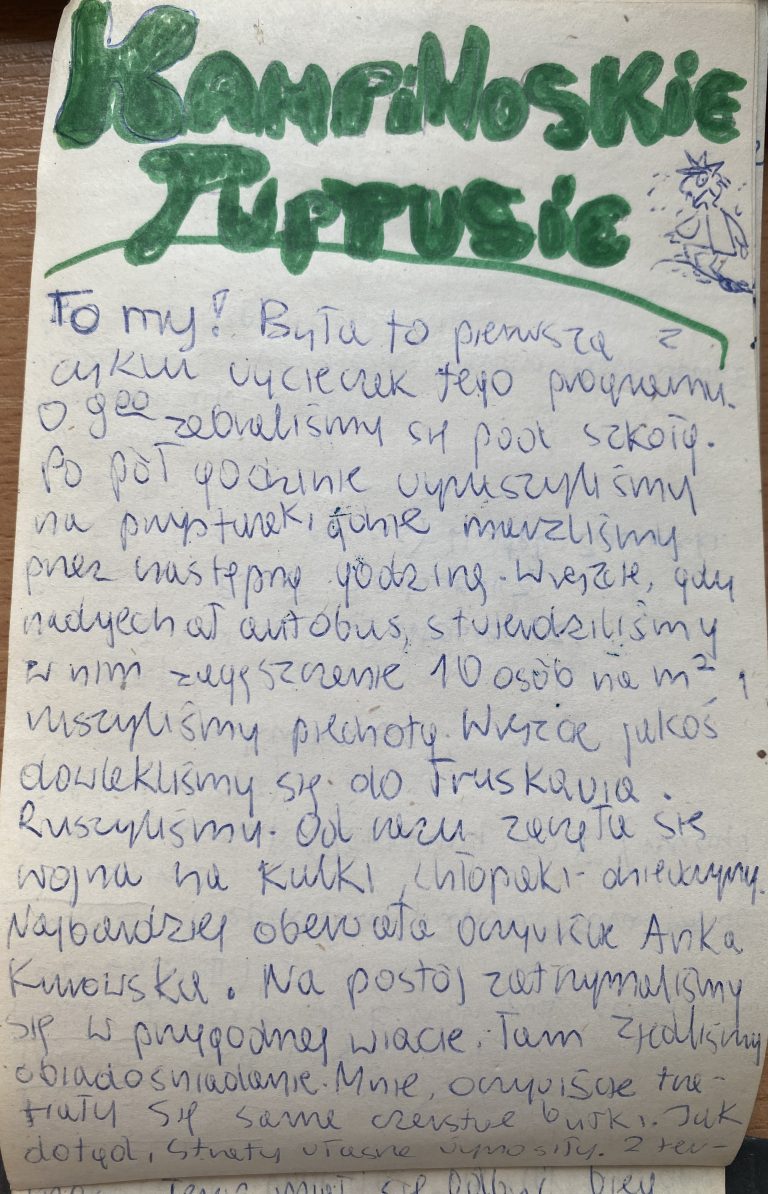 KAMPiNOSKiE
TUPTUSiE
To my! Była to pierwszą z
cyklu wycieczek tego programu.
O 9⁰⁰ zebraliśmy się pod szkołą.
Po pół godzinie wyruszyliśmy
na przystanek, gdzie marzliśmy
przez następną godzinę. Wreszcie, gdy
nadjechał autobus, stwierdziliśmy
w nim zagęszczenie 10 osób na m²,
ruszyliśmy piechotą. Wreszcie jakoś
dowlekliśmy się do Truskawia.
Ruszyliśmy. Od razu zaczęła się
wojna na kulki, chłopaki-dziewczyny.
Najbardziej oberwała oczywiście Anka
Kurowska. Na postój zatrzymaliśmy
się w przygodnej wiacie. Tam zjedliśmy
obiadośniadanie. Mnie, oczywiście tra-
fiały się same czerstwe bułki. Jak
dotąd, straty własne wynosiły: 2 ter-
miał się odbyć bieg